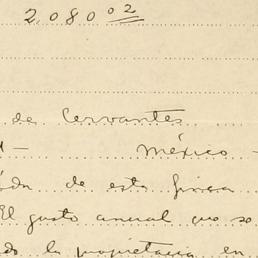 2,080.02
de Cervantes
México -
de esta finca
El gasto anual que se
la propietaria en